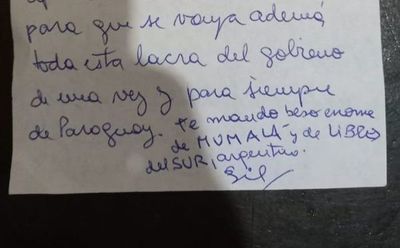 para que se vaya ademá
toda esta lacra del gobierno
de una vez y para siempre
de Paraguay. te mando beso enorme
de MUMALÁ y de LIBRES
del SUR, argentino.